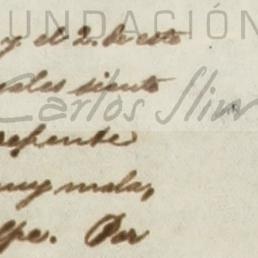 FUNDACIÓN
y el 2. de este
ales siento
Carlos Slim
repente
muy mala,
lpe. Por